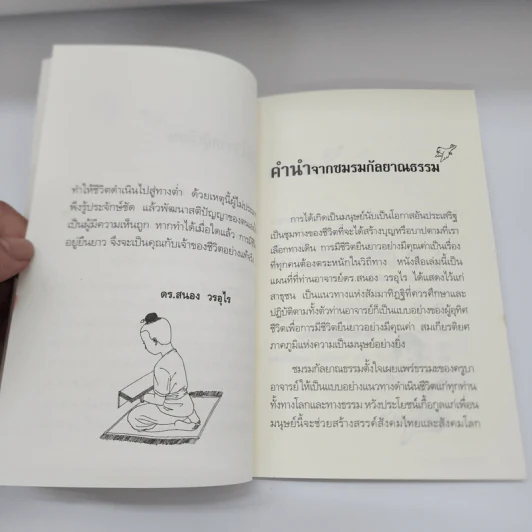 ทำให้ชีวิตดำเนินไปสู่ทางต่ำ ด้วยเหตุนี้ผู้ไม่ประมาท
พึงรู้ประจักษ์ชัด แล้วพัฒนาสติปัญญาของตนเอง
เป็นผู้มีความเห็นถูก หากทำได้เมื่อใดแล้ว การมีชีวิต
อยู่ยืนยาว จึงจะเป็นคุณกับเจ้าของชีวิตอย่างแท้จริง
ดร.สนอง วรอุไร
คำนำจากชมรมกัลยาณธรรม
การได้เกิดเป็นมนุษย์นับเป็นโอกาสอันประเสริฐ
เป็นชุมทางของชีวิตที่จะได้สร้างบุญหรือบาปตามที่เรา
เลือกทางเดิน การมีชีวิตยืนยาวอย่างมีคุณค่าเป็นเรื่อง
ที่ทุกคนต้องตระหนักในวิถีทาง หนังสือเล่มนี้เป็น
แผนที่ที่ท่านอาจารย์ดร.สนอง วรอุไร ได้แสดงไว้แก่
สาธุชน เป็นแนวทางแห่งสัมมาทิฏฐิที่ควรศึกษาและ
ปฏิบัติตามทั้งตัวท่านอาจารย์ก็เป็นแบบอย่างของผู้อุทิศ
ชีวิตเพื่อการมีชีวิตยืนยาวอย่างมีคุณค่า สมเกียรติยศ
ภาคภูมิแห่งความเป็นมนุษย์อย่างยิ่ง
ชมรมกัลยาณธรรมตั้งใจเผยแพร่ธรรมะของครูบา
อาจารย์ ให้เป็นแบบอย่างแนวทางดำเนินชีวิตแก่ทุกท่าน
ทั้งทางโลกและทางธรรม หวังประโยชน์เกื้อกูลแก่เพื่อน
มนุษย์นี้จะช่วยสร้างสรรค์สังคมไทยและสังคมโลก